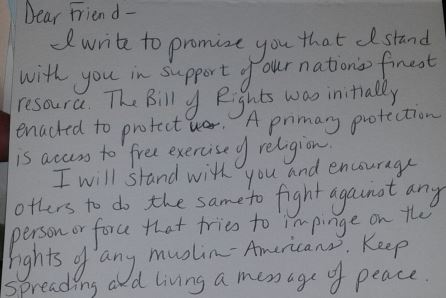 Dear Friend -
I write to promise you that I stand
with you in support of our nation's finest
resource. The Bill of Rights was initially
enacted to protect us. A primary protection
is access to free exercise of religion.
I will stand with you and encourage
others to do the same to fight against any
person or force that tries to impinge on the
rights of any muslim-Americans. Keep
spreading and living a message of peace.